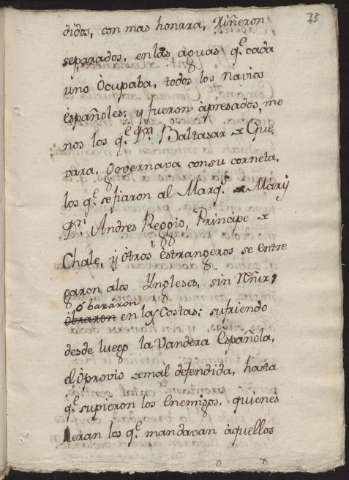 73
dida, con mas honara, riñeron
separados, en las aguas q.e cada
uno Ocupaba, todos los Navios
Españoles; y fueron apresados, me
nos los q.e D.n Baltasar de Gue
vara, Governava con su corneta,
los q.e se fiaron al Marq.s de Mary
D.n Andres Reggio, Principe de
Chale, y otros estrangeros se entre
garon a los Yngleses, sin Reñir,
ó bararon
obraron en las Costas: sufriendo
desde luego la Vandera Española,
el Oprovio de mal defendida, hasta
q.e supieron los Enemigos, quienes
eran los q.e mandavan aquellos